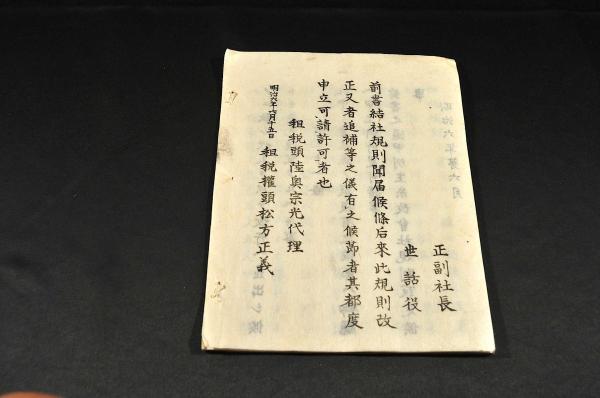 正副社長
世話役
前書結社規則聞届候條后來此規則改
正又者追補等之儀有之候節者其都度
申立可請許可者也
租税頭陸奥宗光代理
明治六年六月十五日 租税權頭松方正義